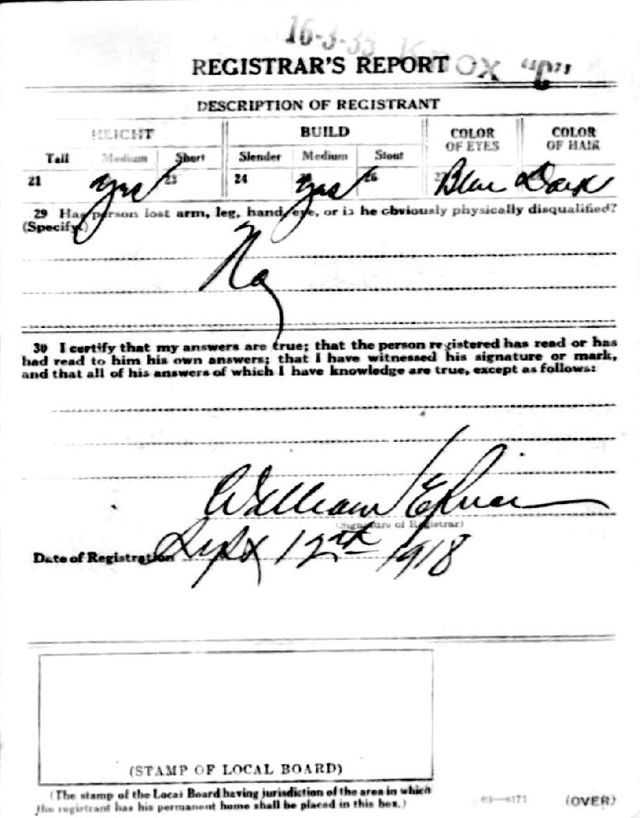 16-3-35 KNOX "C"
REGISTRAR'S REPORT
DESCRIPTION OF REGISTRANT
HEIGHT BUILD COLOR OF EYES COLOR OF HAIR
Tall Medium Short Slender Medium Stout
21 Yes 23 24 Yes 26 27 Blue Dark
29 Has person lost arm, leg, hand, eye, or is he obviously physically disqualified?
(Specify.)
No
30 I certify that my answers are true; that the person registered has read or has
had read to him his own answers; that I have witnessed his signature or mark,
and that all of his answers of which I have knowledge are true, except as follows:
William
(Signature of Registrar)
Date of Registration Sept 12th 1918
(STAMP OF LOCAL BOARD)
(The stamp of the Local Board having jurisdiction of the area in which
the registrant has his permanent home shall be placed in this box.)
(OVER)